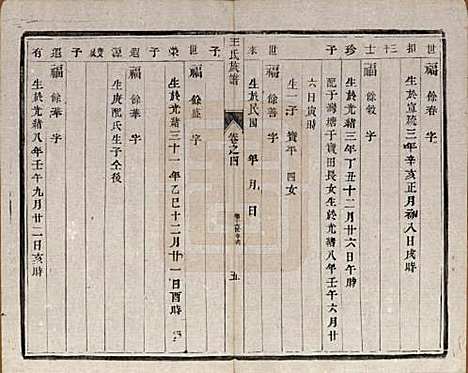 世福餘春字
和生於宣統三年辛亥正月初八日戌時
三十
士福餘敦字
珍生於光緒三年丁丑十二月廿六日寅時
配于灣塘于寶田長女生於光緒八年壬午六月廿
子六日寅時
生一子寶平四女
世福餘善字
來生於民國年月日
王氏族譜
卷之四
五
世福餘蓋字
榮生於光緒三十一年乙巳十二月廿一日酉時
子
福餘華字
源生庚配氏生子仝後
子
遐福餘華字
有生於光緒八年壬午九月廿二日亥時